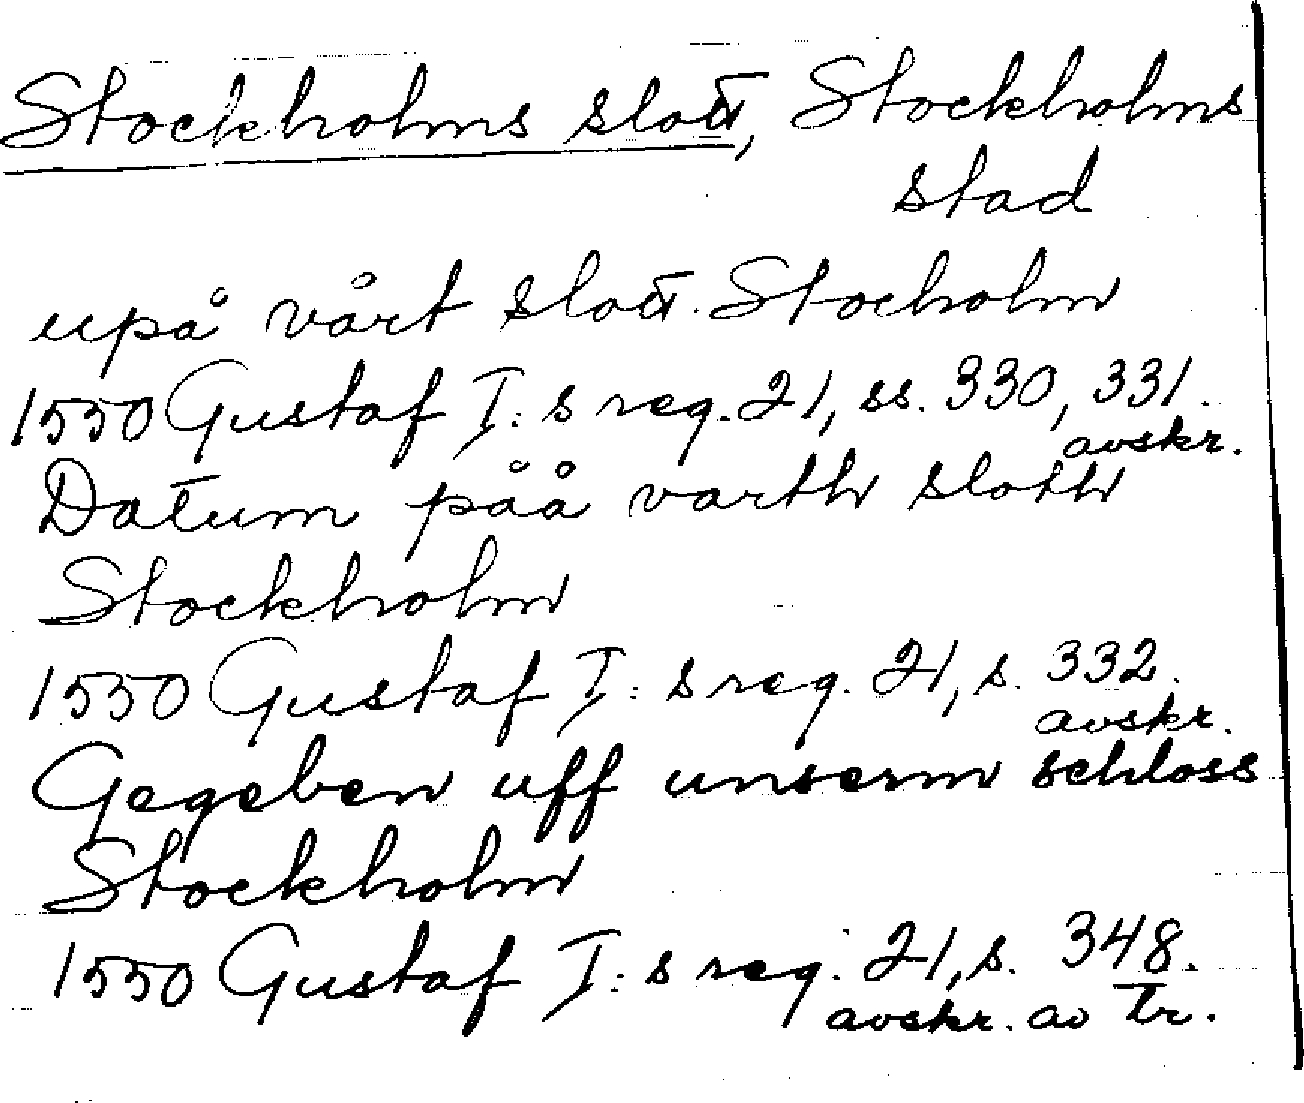 Stockholms slott, Stockholms
stad
upå vårt slott Stocholm
1550 Gustaf I:s reg. 21, ss. 330, 331.
avskr.
Datum påå varth sloth
Stockholm
1550 Gustaf I:s reg. 21, s. 332.
avskr.
Gegeben uff unserm schloss
Stockholm
1550 Gustaf I:s reg. 21, s. 348.
avskr. av tr.